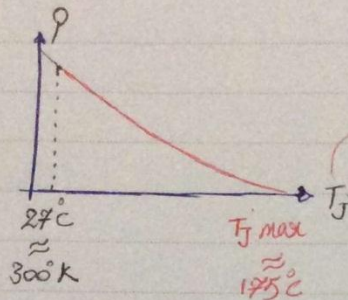 P
TJ
27°C
≈
300°K
TJ max
≈
175°C